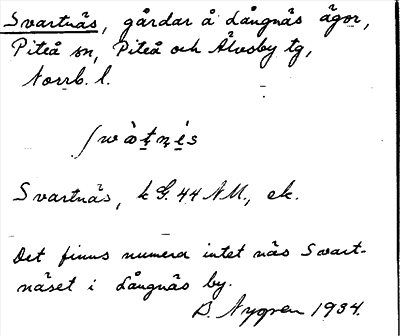 Svartnäs, gårdar å Långnäs ägor,
Piteå sn, Piteå och Älvsby tg,
Norrb. l.
Svartnäs, k G. 44 NM., ek.
Det finns numera intet näs Svart-
näset i Långnäs by.
D. Nygren 1934.